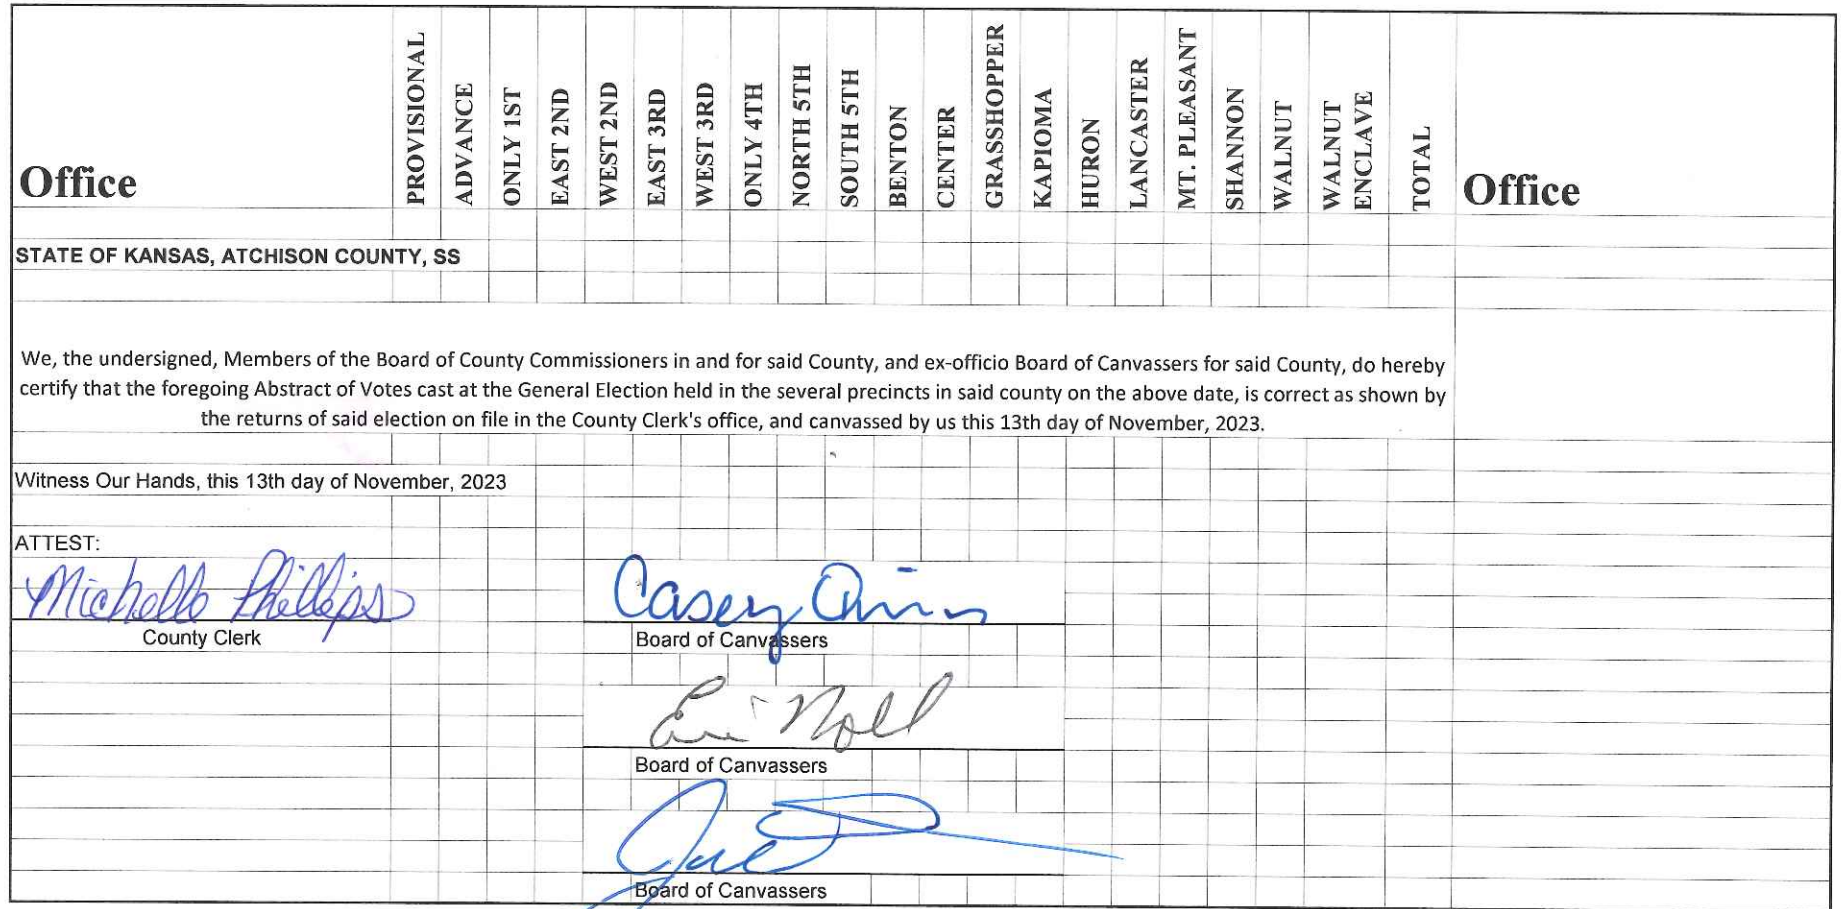 Office
PROVISIONAL
ADVANCE
ONLY 1ST
EAST 2ND
WEST 2ND
EAST 3RD
WEST 3RD
ONLY 4TH
NORTH 5TH
SOUTH 5TH
BENTON
CENTER
GRASSHOPPER
KAPIOMA
HURON
LANCASTER
MT. PLEASANT
SHANNON
WALNUT
WALNUT
ENCLAVE
TOTAL
Office
STATE OF KANSAS, ATCHISON COUNTY, SS
We, the undersigned, Members of the Board of County Commissioners in and for said County, and ex-officio Board of Canvassers for said County, do hereby
certify that the foregoing Abstract of Votes cast at the General Election held in the several precincts in said county on the above date, is correct as shown by
the returns of said election on file in the County Clerk's office, and canvassed by us this 13th day of November, 2023.
Witness Our Hands, this 13th day of November, 2023
ATTEST:
Michelle Phillips
County Clerk
Casey Quinn
Board of Canvassers
Eric Noll
Board of Canvassers
Board of Canvassers